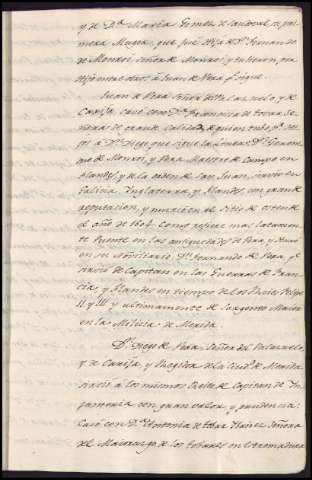 y de D.ª María Gomez de Sandoval, su pri-
mera Muger, que fué Hija de D.n Fernan do
de Monroi, Señor de Monroi; y tubieron, en
Hijo entre otros á Juan de Vera q.e sigue.
Juan de Vera Señor del Palazuelo, y de
Carija, casó con D.ª Francisca de tovar Se-
ñora de grande calidad, de quien tubo p.r
á D.n Diego, que sigue la linea: D.n Geroni-
mo de Monroi, y Vera Maestre de Campo en
flandes, y de la orden de San Juan, sirvió en
Galicia, Inglaterra, y Flandes, con grande
reputacion, y murió en el Sitio de ostende
el año de 1604. como refiere mas largamen-
te Puente en las antiguedades de Vera, y Haro
en su Nobiliario: D.n Fernando de Vera, q.e
sirvió de Capitan en las Guerras de Fran-
cia, y Flandes en tiempo de los Reies Felipe
II, y III, y ultimamente de Sargento Maior
en la Milicia de Merida.
D.n Diego de Vera, Señor del Palazuelo,
y de Carija, y Regidor de la Ciud.d de Merida
sirvió á los mismos Reies de Capitan de In-
fanteria con gran valor, y prudencia:
Casó con D.ª Antonia de tobar Señora
del Maiorazgo de los tobares en Extremadura